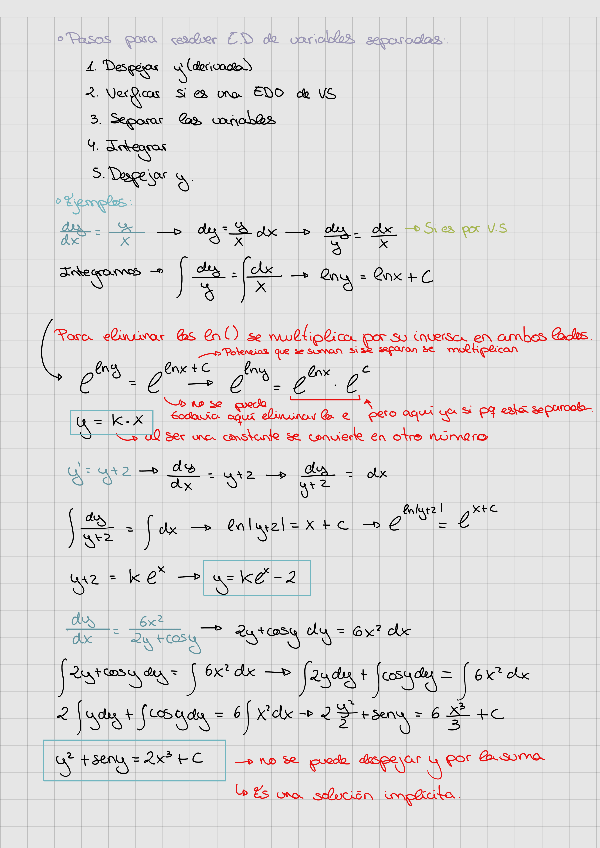 ° Pasos para resolver E.D de variables separadas.
1. Despejar y' (derivada)
2. Verficas si es una EDO de VS
3. Separar las variables
4. Integrar
5. Despejar y.
° Ejemplos:
dy/dx = y/x → dy = y/x dx → dy/y = dx/x → Si es por V.S
Integramos → ∫ dy/y = ∫ dx/x → ln y = ln x + C
Para eliminar los ln() se multiplica por su inversa en ambos lados.
→ Potencias que se suman si se separan se multiplican
e^{ln y} = e^{ln x + C} → e^{ln y} = e^{ln x} · e^{c}
→ no se puede todavía aquí eliminar la e
pero aquí ya si pq está separada.
y = k · x
→ al ser una constante se convierte en otro número
y' = y+2 → dy/dx = y+2 → dy/y+2 = dx
∫ dy/y+2 = ∫ dx → ln|y+2| = x + c → e^{ln|y+2|} = e^{x+c}
y+2 = k e^x → y = k e^x − 2
dy/dx = 6x²/2y+cosy → 2y+cosy dy = 6x² dx
∫ 2y+cosy dy = ∫ 6x² dx → ∫ 2y dy + ∫ cosy dy = ∫ 6x² dx
2 ∫ y dy + ∫ cosy dy = 6 ∫ x² dx → 2 y²/2 + sen y = 6 x³/3 + C
y² + sen y = 2x³ + C → no se puede despejar y por la suma
↳ Es una solución implícita.